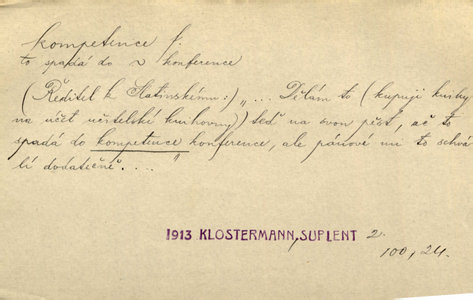 kompetence f.
to spadá do ~ konference
(Ředitel k Slatinskému:) „... Dělám to (kupuji knihy
na účet učitelské knihovny)) teď na svou pěst, ač to
spadá do kompetence konference, ale pánové mi to schvá
lí dodatečně....“
1913 KLOSTERMANN, SUPLENT 2.
100, 24.